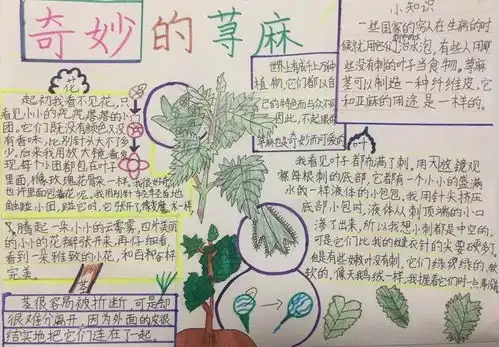 奇妙的荨麻
小知识
一些国家的穷人在生病的时
候就用它们治水泡，有些人用那
些没有刺的叶子当食物。荨麻
茎可以制造一种纤维皮，它
和亚麻的用途是一样的。
世界上有成千上万种
植物，它们都以自
己的特点而与众不同
因此，不起眼的
荨麻也是奇妙而可爱的
花
起初我看不见花，只
看见小小的
团。它们既没有颜色又没
有香味，比别针头大不了多
少。后来我用放大镜看发
现每个小团都包在叶子
里面，像玫瑰花骨朵一样。我很好奇，
也许里面包着花呢。我用别针轻轻自地
触碰小团，碰它时，它张开了像魔术一样
腾起一朵小小的云雾，四片美丽
的小小的花瓣张开来，再仔细看，
看到一朵雅致的小花，和百合花一样
完美。
茎
茎很容易被折断，可是却
很难分离开，因为外面的皮很
结实地把它们连在了一起。
叶
我看见叶子都布满了刺。用放大镜观
察每根刺的底部，它都有一个小小的盛满
水的一样液体的小包包。我用针尖挤压
底部小包时，液体从刺顶端的小口
滲了出来，所以我想小刺都是中空的，
可是它们比我的缝衣针的尖要硬多了。
但是有些嫩叶没有刺，它们绿绿绿的，软
软的，像天鹅绒一样，我握着它们时一点事